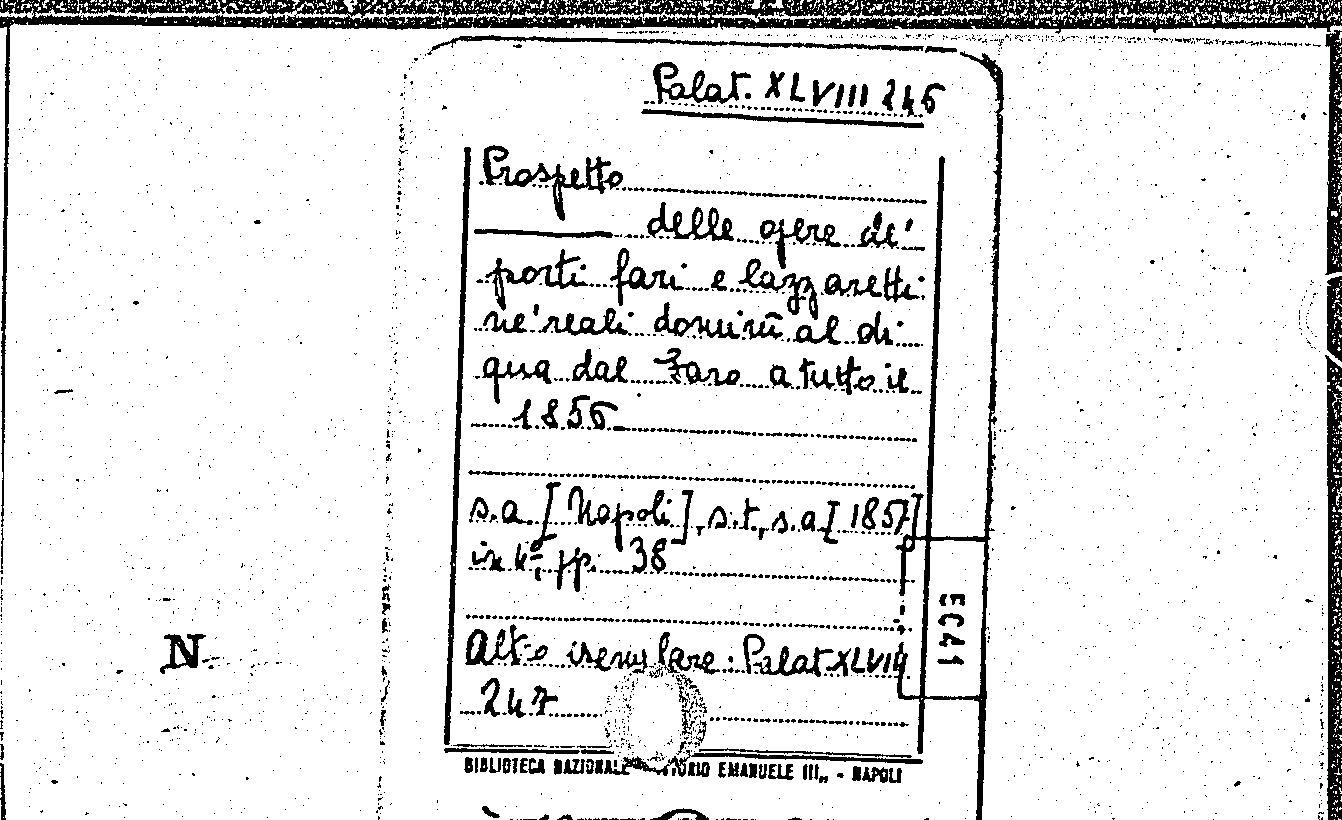 Palat. XLVIII 246
Prospetto
delle opere de'
porti fari e lazzaretti
ne' reali dominii al di
qua dal Faro a tutto il
1856
s.a. [Napoli], s.t., s.a. [1857]
in 4º, pp. 38
EC41
N
Altro esemplare: Palat. XLVIII
247
BIBLIOTECA NAZIONALE VITTORIO EMANUELE III„ - NAPOLI